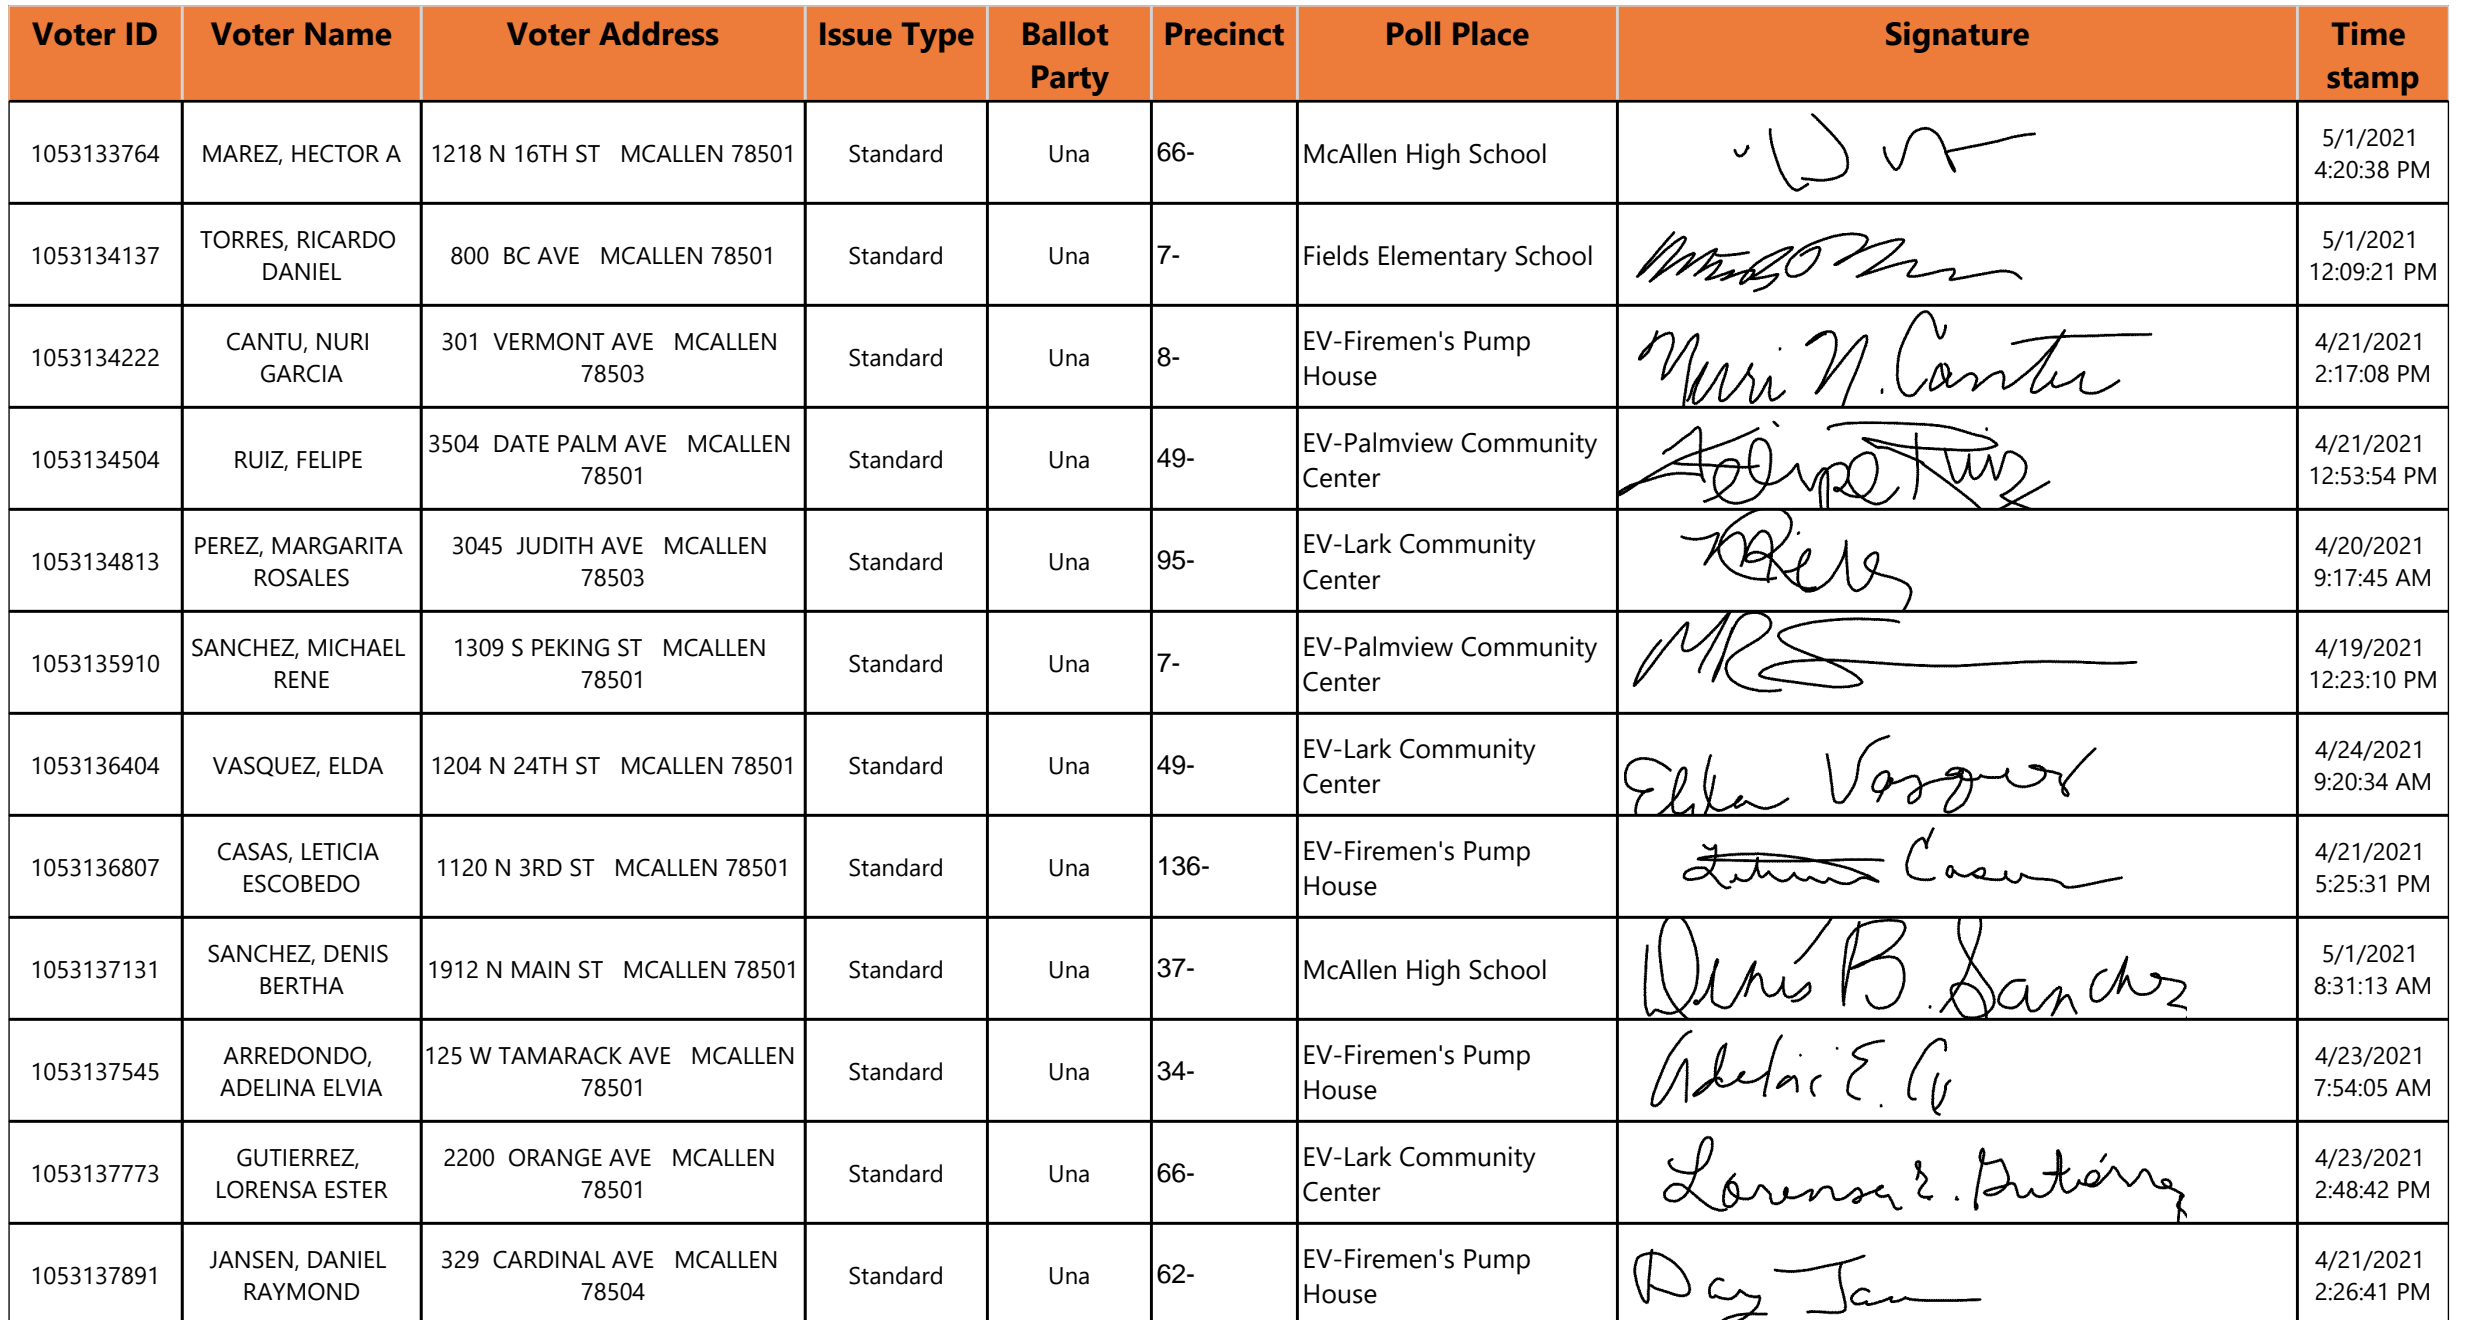 Voter ID Voter Name Voter Address Issue Type Ballot Party Precinct Poll Place Signature Time stamp
1053133764 MAREZ, HECTOR A 1218 N 16TH ST MCALLEN 78501 Standard Una 66- McAllen High School 5/1/2021 4:20:38 PM
1053134137 TORRES, RICARDO DANIEL 800 BC AVE MCALLEN 78501 Standard Una 7- Fields Elementary School 5/1/2021 12:09:21 PM
1053134222 CANTU, NURI GARCIA 301 VERMONT AVE MCALLEN 78503 Standard Una 8- EV-Firemen's Pump House Nuri N. Cantu 4/21/2021 2:17:08 PM
1053134504 RUIZ, FELIPE 3504 DATE PALM AVE MCALLEN 78501 Standard Una 49- EV-Palmview Community Center Felipe Ruiz 4/21/2021 12:53:54 PM
1053134813 PEREZ, MARGARITA ROSALES 3045 JUDITH AVE MCALLEN 78503 Standard Una 95- EV-Lark Community Center 4/20/2021 9:17:45 AM
1053135910 SANCHEZ, MICHAEL RENE 1309 S PEKING ST MCALLEN 78501 Standard Una 7- EV-Palmview Community Center MRS 4/19/2021 12:23:10 PM
1053136404 VASQUEZ, ELDA 1204 N 24TH ST MCALLEN 78501 Standard Una 49- EV-Lark Community Center Elda Vasquez 4/24/2021 9:20:34 AM
1053136807 CASAS, LETICIA ESCOBEDO 1120 N 3RD ST MCALLEN 78501 Standard Una 136- EV-Firemen's Pump House Casas 4/21/2021 5:25:31 PM
1053137131 SANCHEZ, DENIS BERTHA 1912 N MAIN ST MCALLEN 78501 Standard Una 37- McAllen High School Denis B. Sanchez 5/1/2021 8:31:13 AM
1053137545 ARREDONDO, ADELINA ELVIA 125 W TAMARACK AVE MCALLEN 78501 Standard Una 34- EV-Firemen's Pump House E. 4/23/2021 7:54:05 AM
1053137773 GUTIERREZ, LORENSA ESTER 2200 ORANGE AVE MCALLEN 78501 Standard Una 66- EV-Lark Community Center Lorensa E. Gutiérrez 4/23/2021 2:48:42 PM
1053137891 JANSEN, DANIEL RAYMOND 329 CARDINAL AVE MCALLEN 78504 Standard Una 62- EV-Firemen's Pump House Ray 4/21/2021 2:26:41 PM